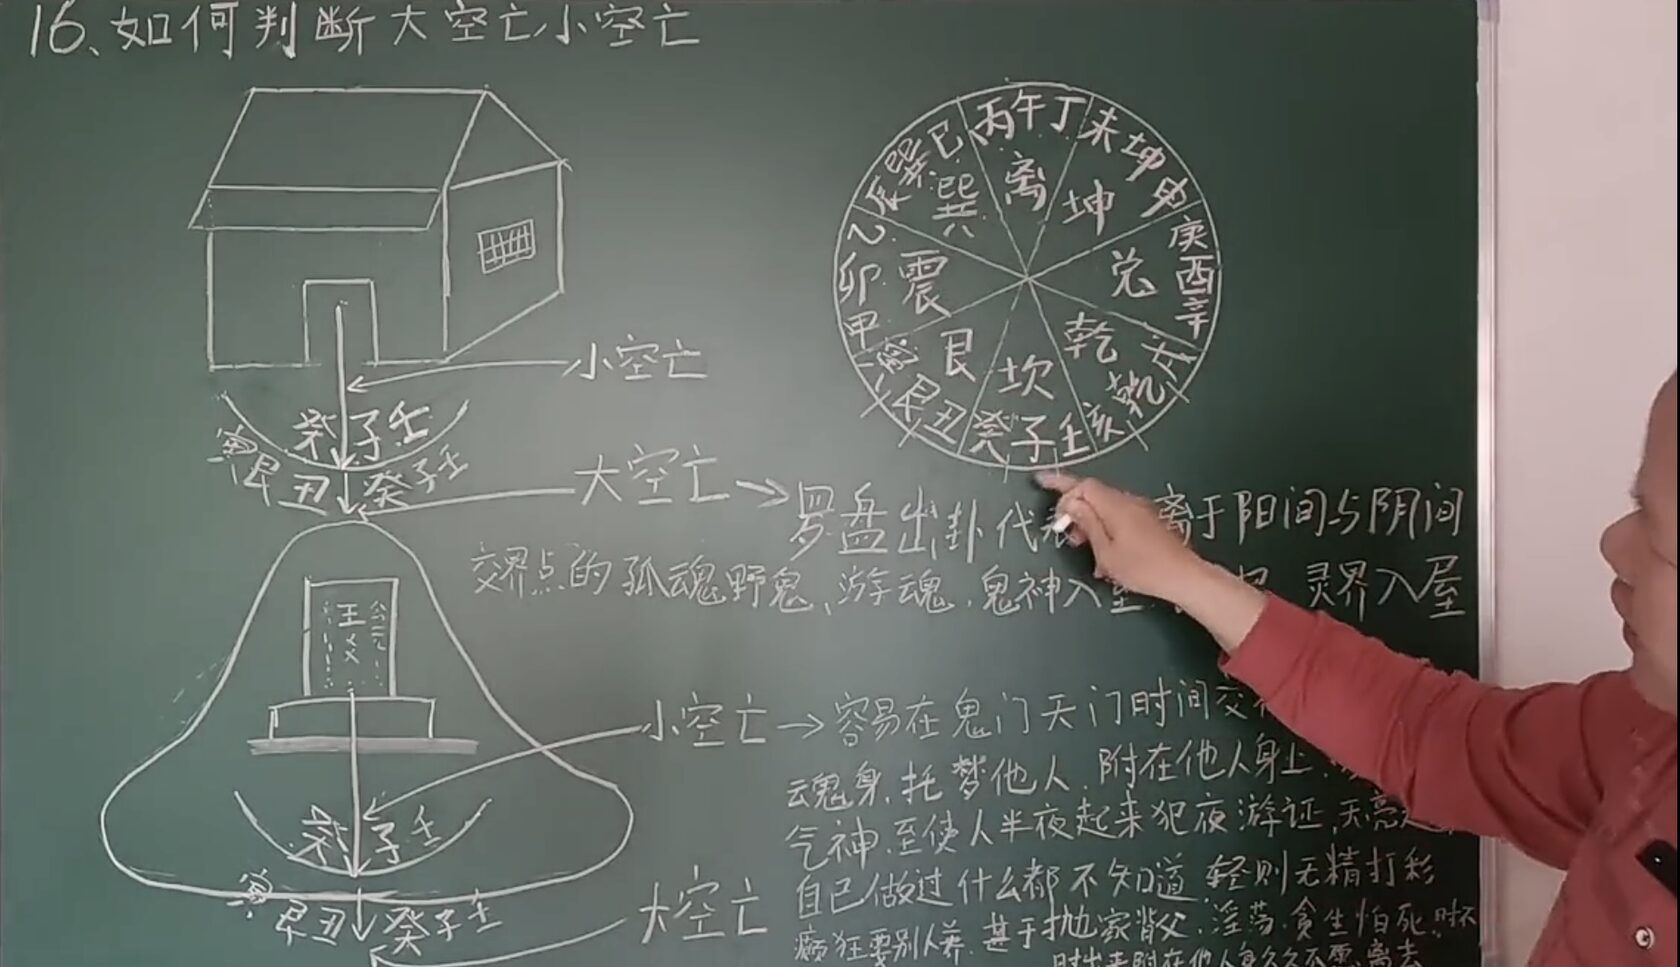 16、如何判断大空亡小空亡
丙午丁
未坤申
庚酉辛
戌乾亥
壬子癸
丑艮寅
甲卯乙
辰巽巳
离
坤
兑
乾
坎
艮
震
巽
小空亡
癸子壬
寅艮丑癸子壬
大空亡
罗盘出卦代表 离于阳间与阴间
交界点的孤魂野鬼、游魂、鬼神入 灵界入屋
王义
小空亡
容易在鬼门天门时间交
魂身、托梦他人、附在他人身上
气神、至使人半夜起来犯夜游证、天亮
自己做过什么都不知道、轻则无精打彩
癫狂要别人养、甚于抛家背父、淫荡、贪生怕死、时不
时出来附在他人身久久不愿离去
癸子壬
寅艮丑癸子壬
大空亡